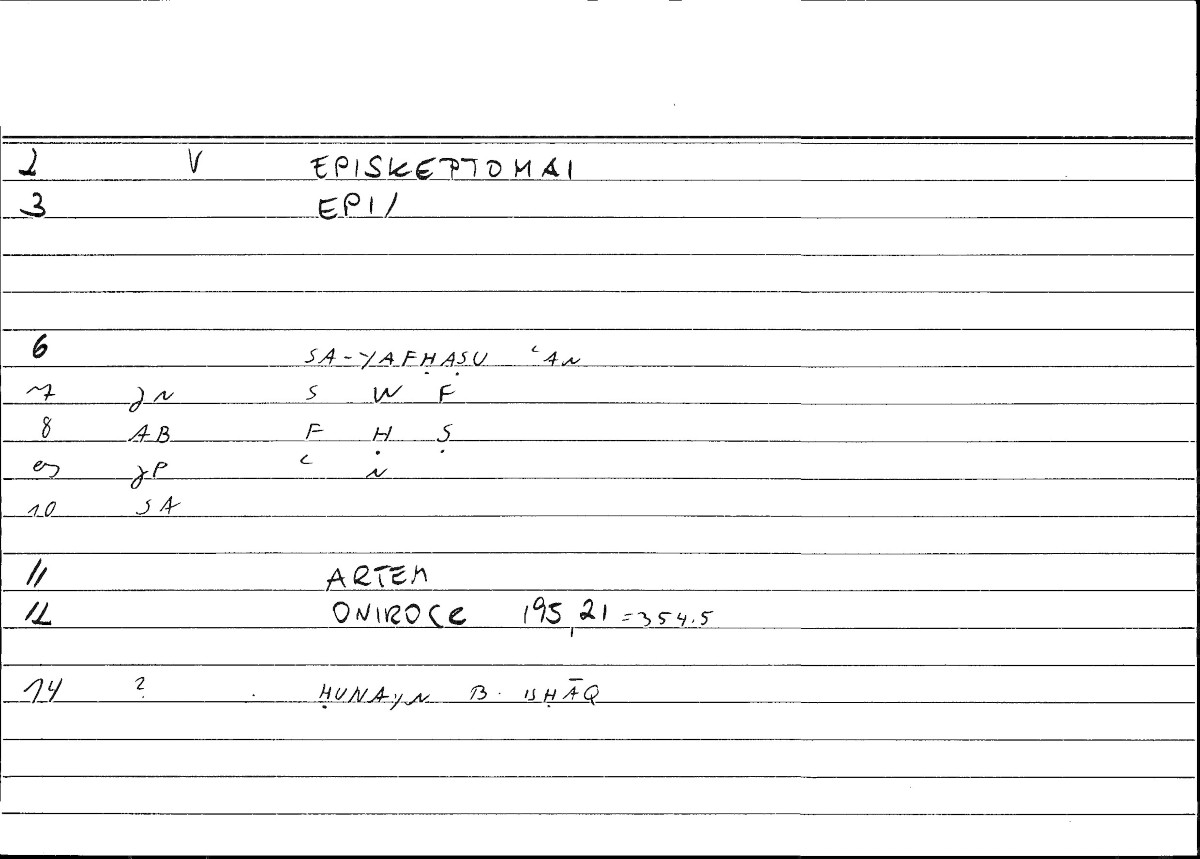 2 V EPISKEPTOMAI
3 EPI/
6 SA-YAFḤAṢU ʿAN
7 JN S W F
8 AB F Ḥ Ṣ
9 JP ʿ N
10 SA
11 ARTEM
12 ONIROCR 195,21 =354.5
14 2 ḤUNAYN B. ISḤĀQ